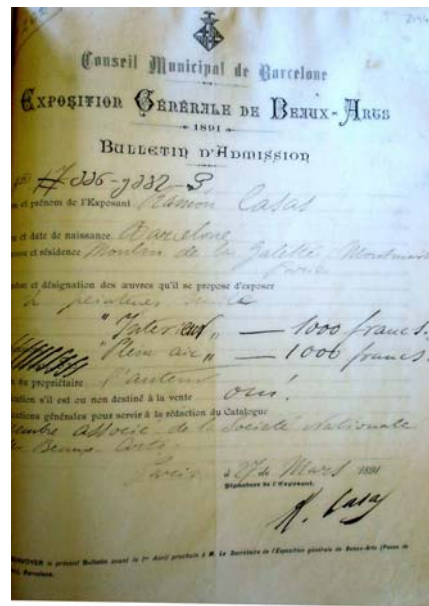 Conseil Municipal de Barcelone
EXPOSITION GÉNÉRALE DE BEAUX-ARTS
1891
BULLETIN D'ADMISSION
et prénom de l'Exposant Ramón Casas
et date de naissance. Barcelone
et résidence Moulin de la Galette Montmartre
Paris
et désignation des œuvres qu'il se propose d'exposer
2 peintures
"Interieur" — 1000 francs.
"Plein air" — 1000 francs.
du propriétaire l'auteur
s'il est ou non destiné à la vente oui!
générales pour servir à la rédaction du Catalogue
Membre Associé de la Société Nationale
Beaux Arts.
Paris à 27 de Mars 1891
Signature de l'Exposant,
R. Casas
RENVOYER le présent Bulletin avant le 1er Avril prochain à M. Le Secrétaire de l'Exposition générale de Beaux-Arts (Parc de
Barcelone.